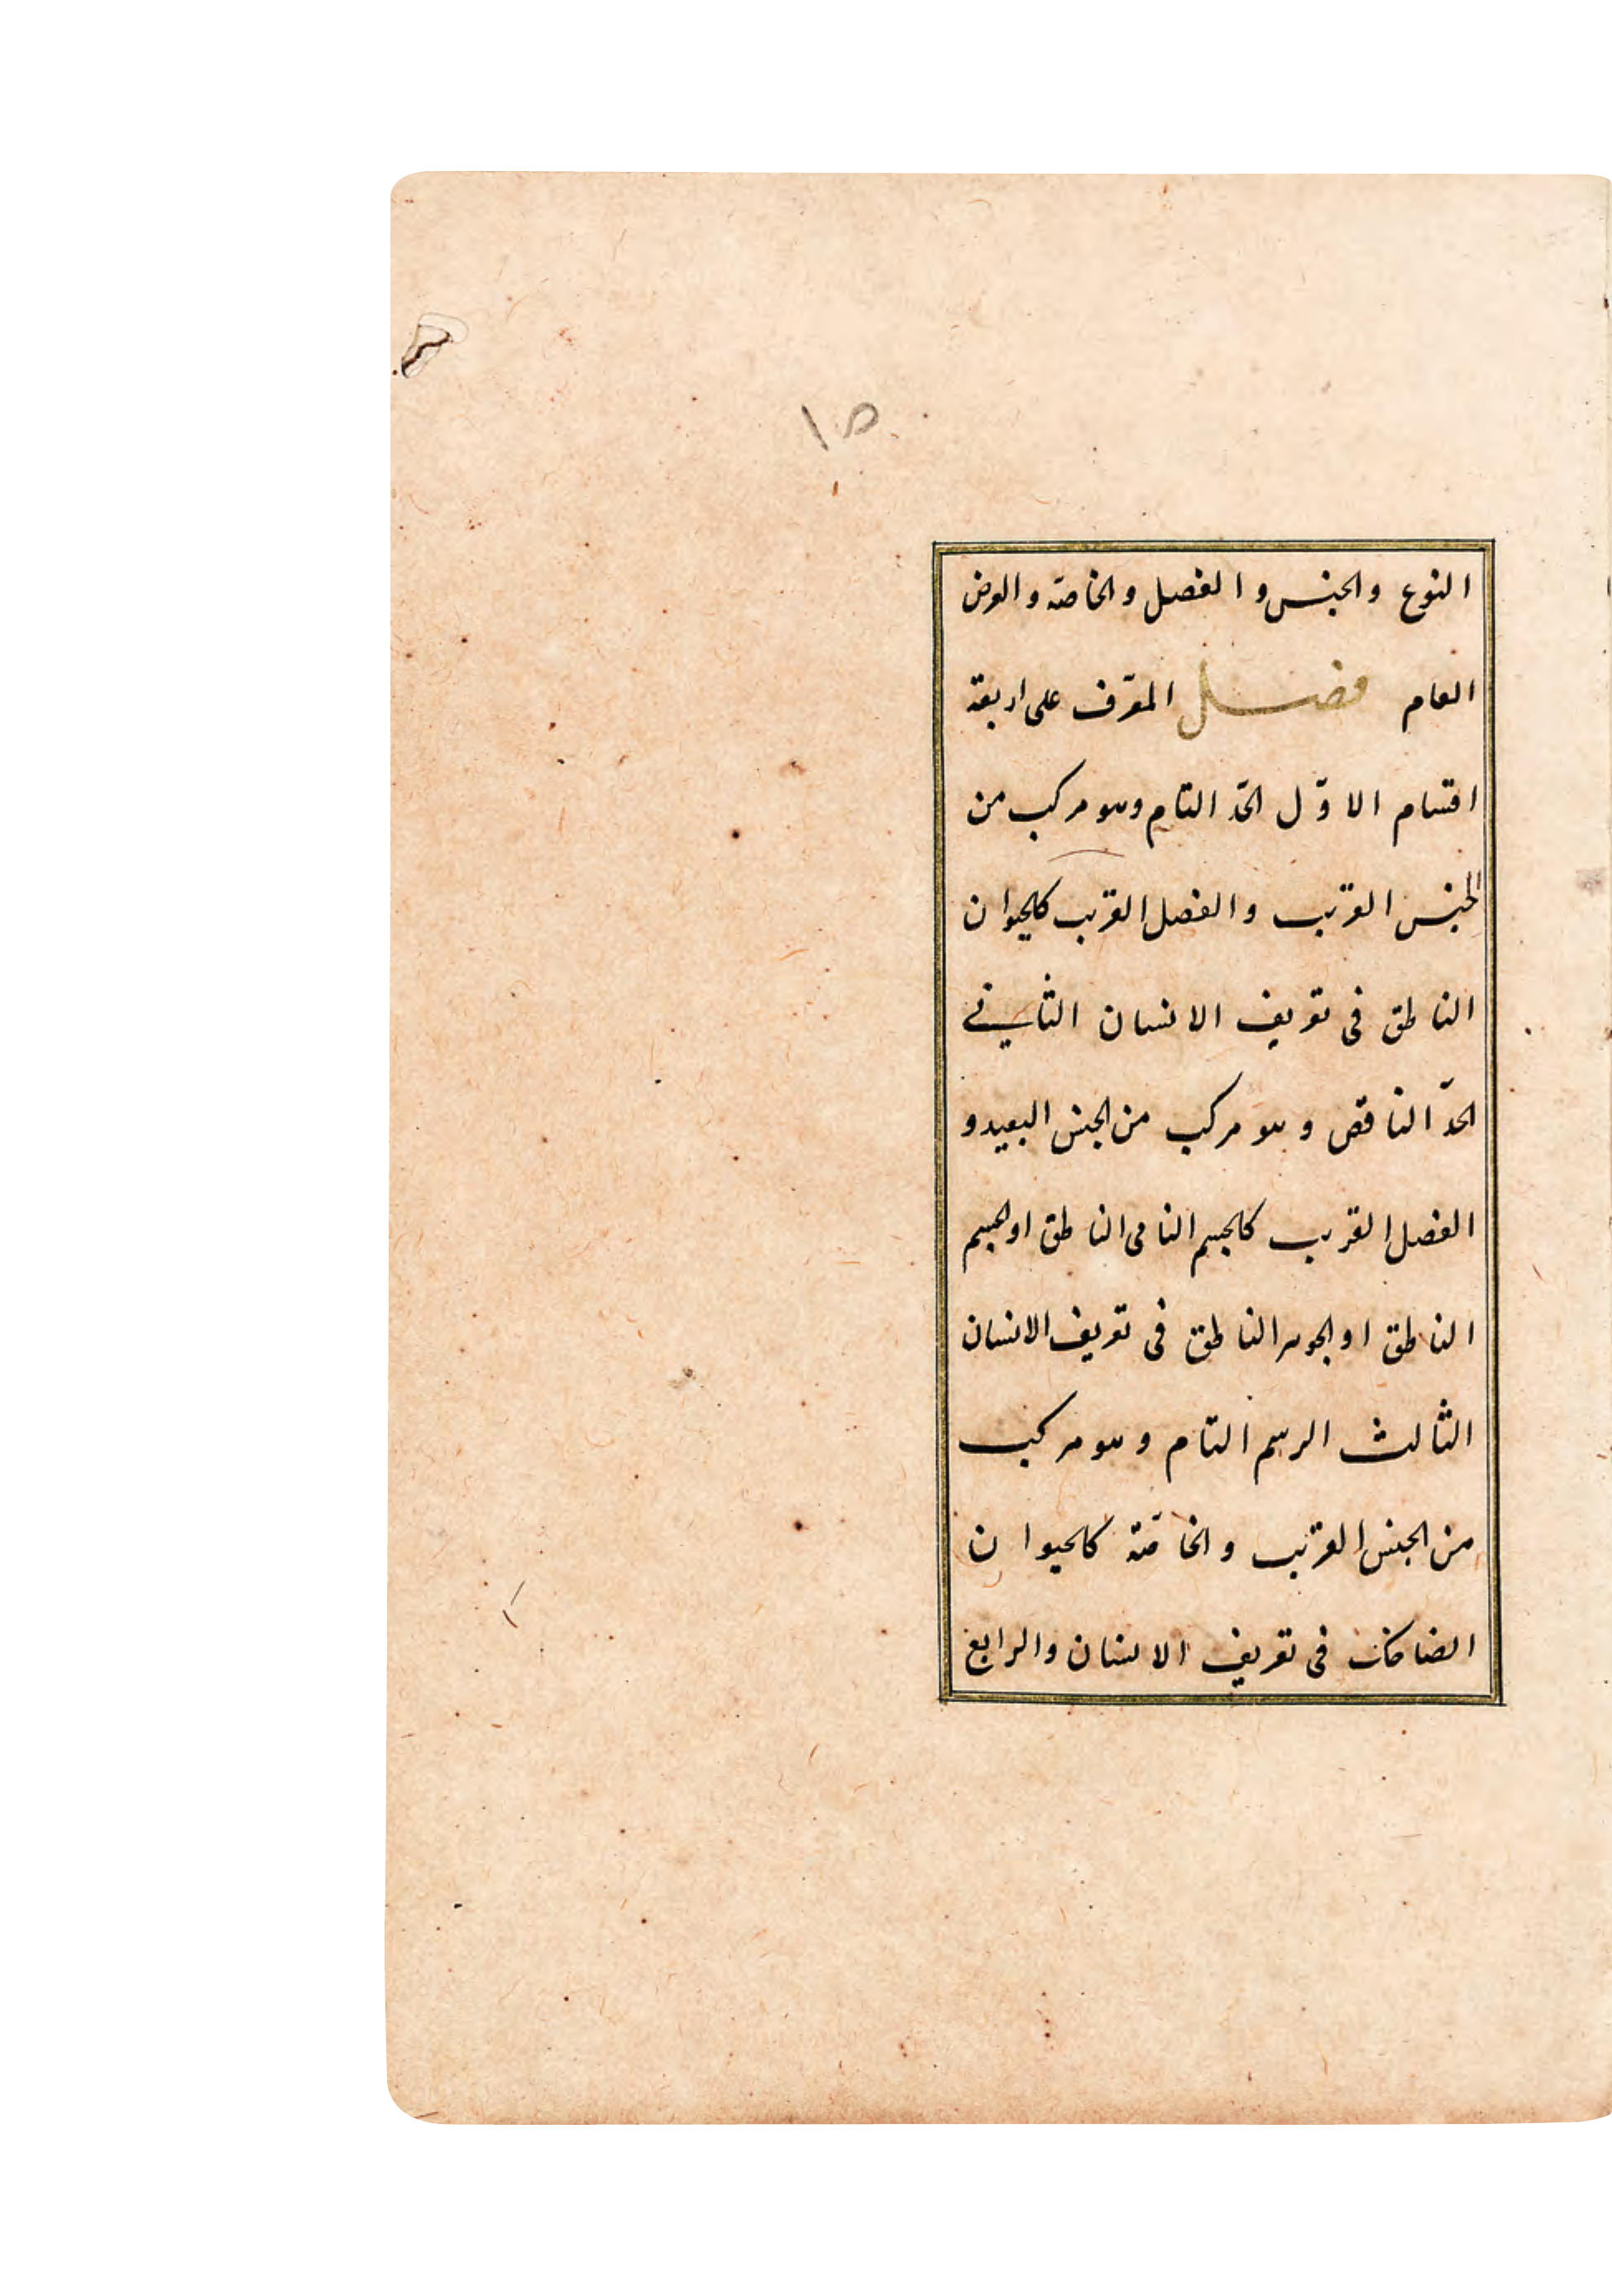 ١٥
النوع والجنس والفصل والخاصّة والعرض
العام فصل المعرّف على اربعة
اقسام الاوّل الحدّ التام وهو مركب من
الجنس القريب والفصل القريب كالحيوان
الناطق فى تعريف الانسان الثانے
الحدّ الناقص وهو مركب من الجنس البعيد و
الفصل القريب كالجسم النامى الناطق او الجسم
الناطق او الجوهر الناطق فى تعريف الانسان
الثالث الرسم التام وهو مركب
من الجنس القريب والخاصّة كالحيوان
الضاحك فى تعريف الانسان والرابع